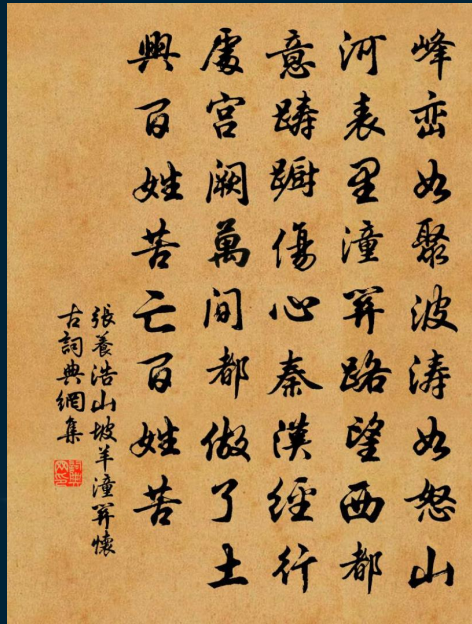 峰巒如聚波濤如怒山
河表里潼關路望西都
意躊躕傷心秦漢經行
處宮闕萬間都做了土
興百姓苦亡百姓苦
張養浩山坡羊潼關懷
古詞典網集